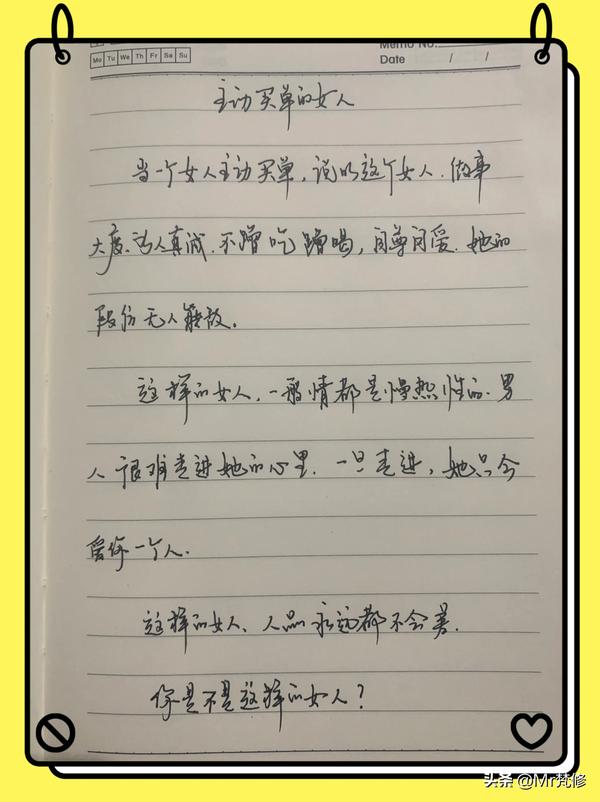 Memo No.
Mo Tu We Th Fr Sa Su
Date / /
主动买单的女人
当一个女人主动买单,说明这个女人.做事
大度.为人真诚.不蹭吃蹭喝,自尊自爱.她的
段位无人能敌.
这样的女人.一般情都是慢热性的.男
人很难走进她的心里.一旦走进,她只会
爱你一个人.
这样的女人、人品永远都不会差.
你是不是这样的女人?
头条 @Mr梵修